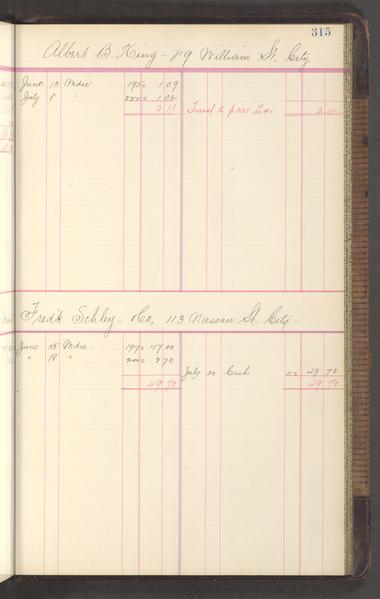 315
Albert B. King - 89 William St. City
June 10 Mdse 195 1 09
July 8 " 222 1 02
2 11 Transf to p 355 L 2 11
Fred'k Schley - & Co, 113 Nassau St. City -
June 15 Mdse - 197 47 00
" 18 " 200 2 70
July 22 Cash 110 49 70
49 70 49 70